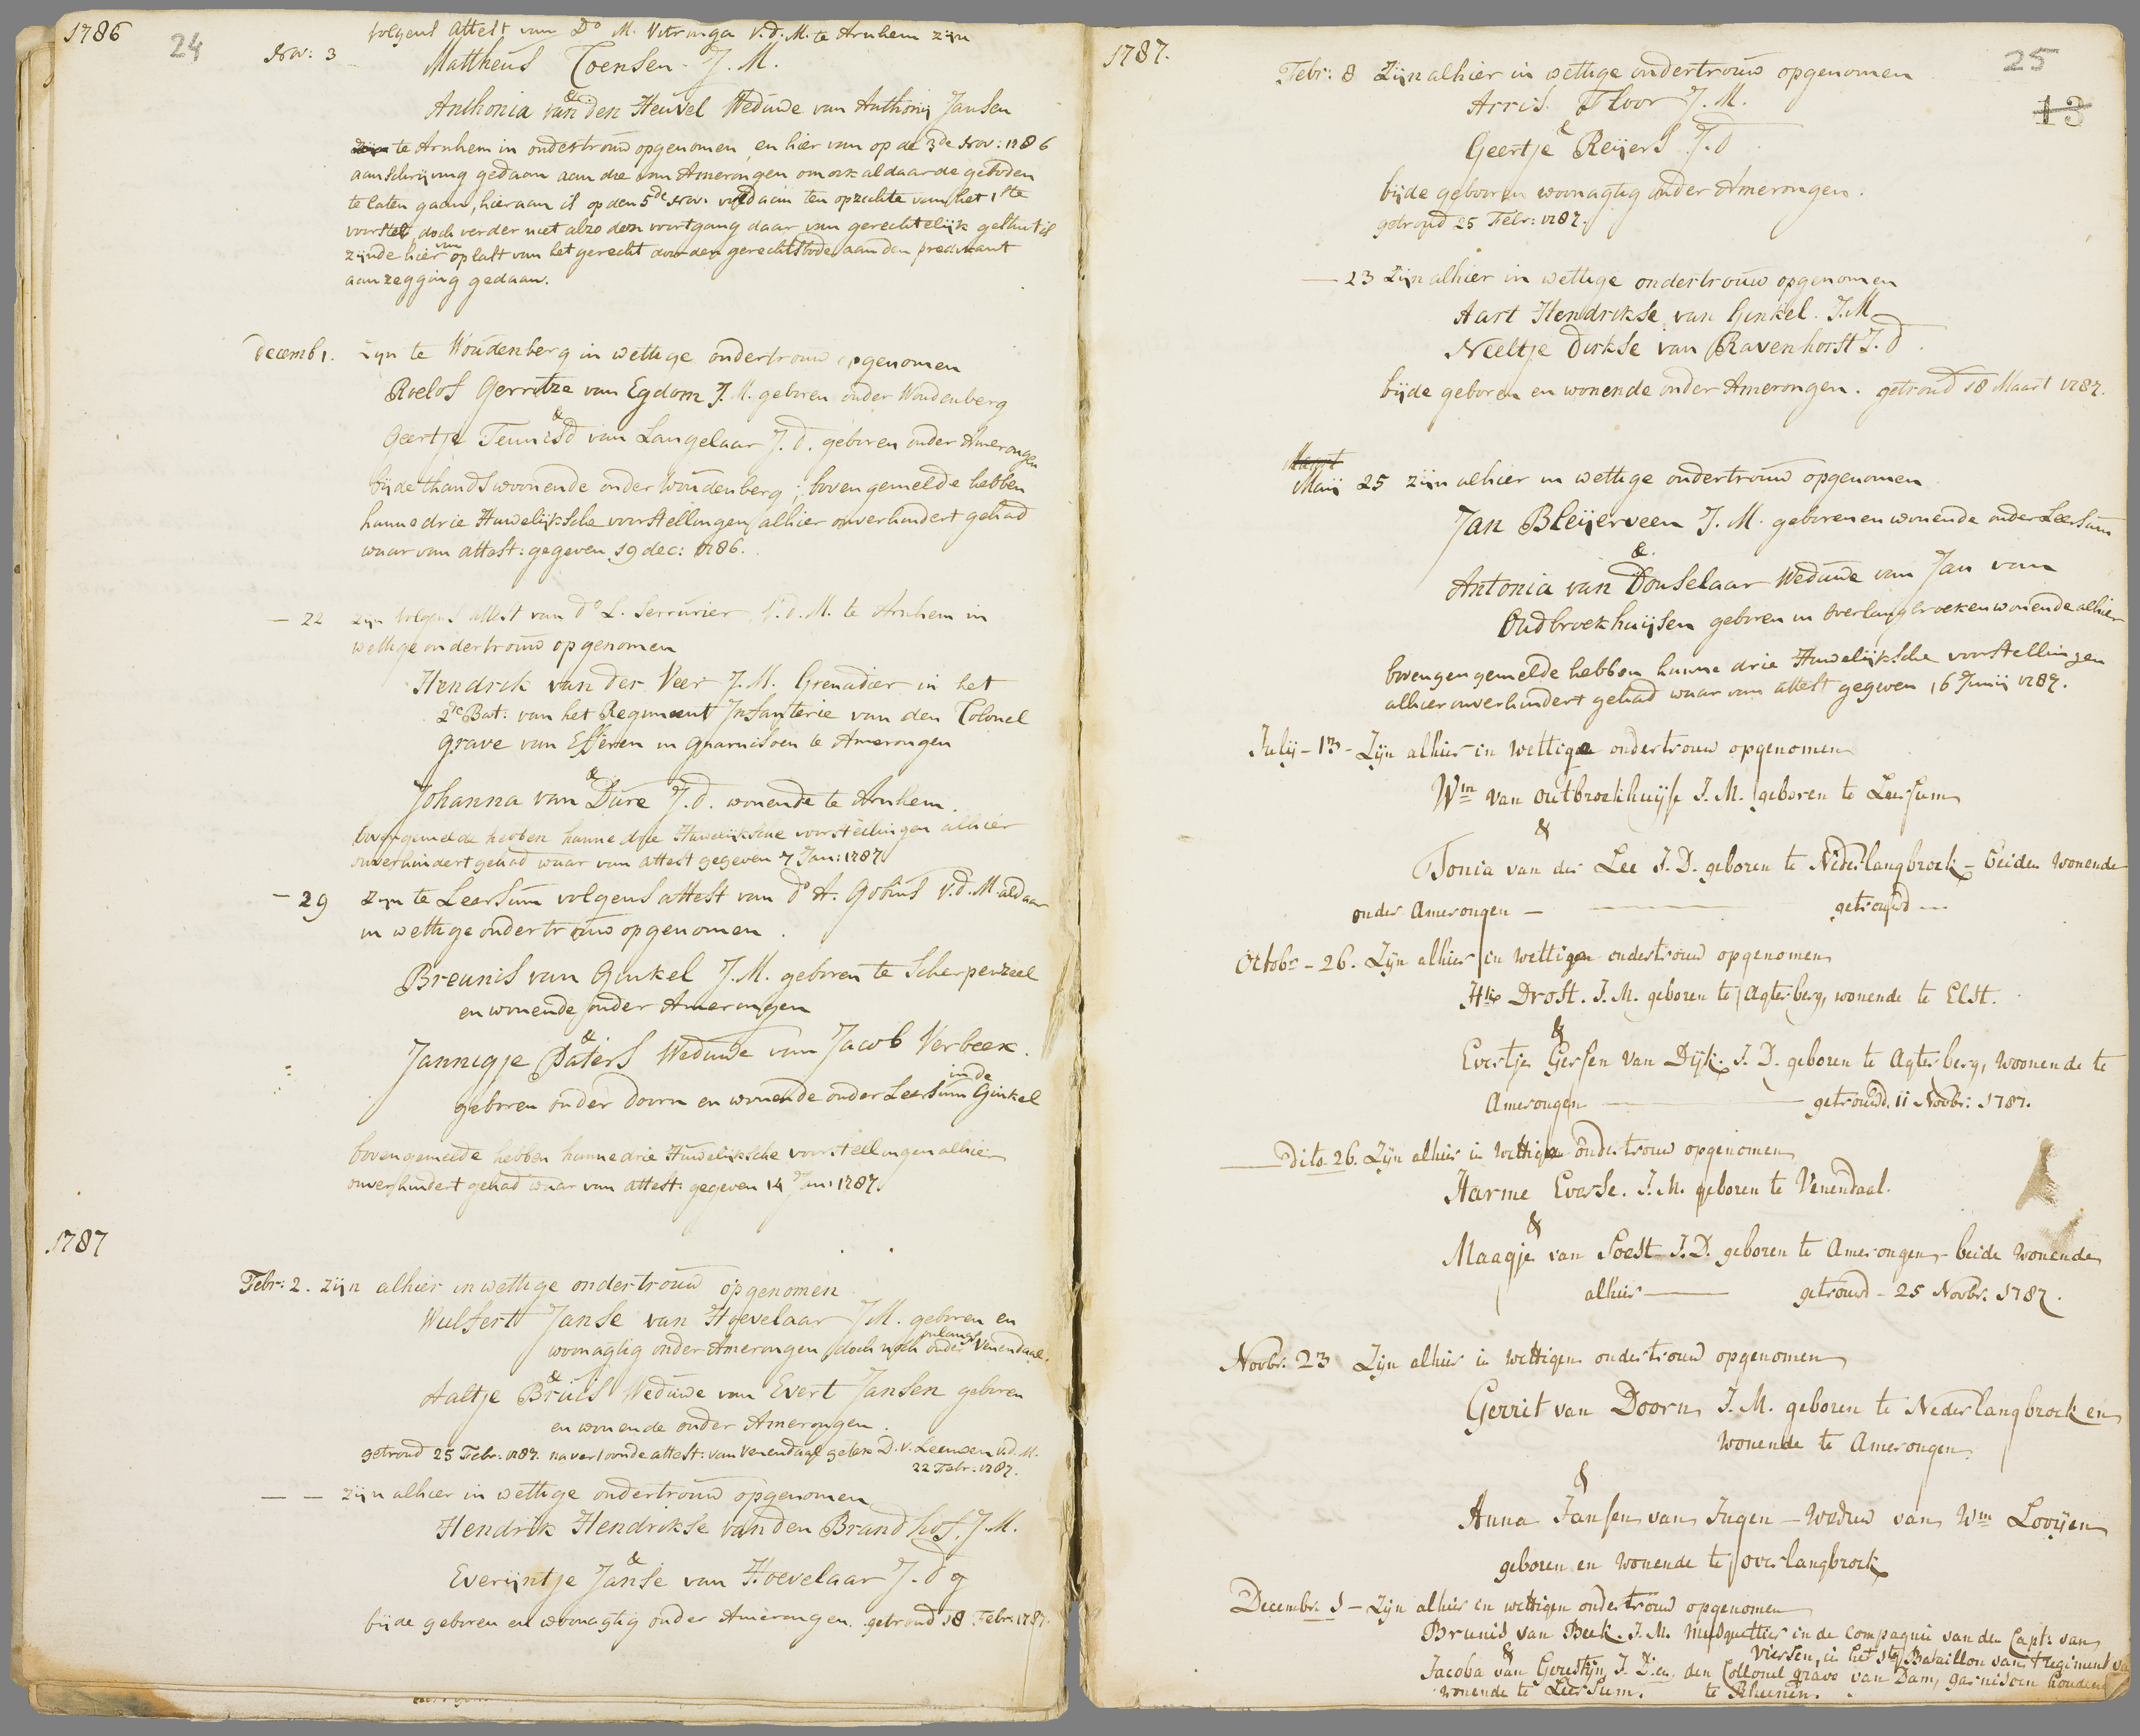 1786
24
Nov: 3
volgens attest van Do M. Vitringa V.d.M. te Arnhem zijn
Mattheus Toensen J. M.
&
Anthonia van den Heuvel Weduwe van Anthonij Jansen
zijn te Arnhem in ondertrouw opgenomen, en hier van op de 3de Nov: 1786
aanschrijving gedaan aan die van Amerongen om ook aldaar de geboden
te laten gaan, hieraan is op den 5de Nov: voldaan ten opzichte van het 1ste
voorstel doch verder niet alzo den voortgang daar van gerechtelijk gestuit is
zijnde hier van op last van het gerecht door den gerechtsbode aan den predikant
aanzegging gedaan.
decemb 1. Zijn te Woudenberg in wettige ondertrouw opgenomen
Roelof Gerritze van Egdom J. M. geboren onder Woudenberg
&
Geertje Teunisd van Langelaar J. d. geboren onder Amerongen
bijde thands woonende onder Woudenberg; bovengemelde hebben
hunne drie Huwelijksche voorstellingen alhier onverhindert gehad
waar van attest: gegeven 19 dec: 1786.
— 22 zijn volgens attest van do L. Serrurier V.d.M. te Arnhem in
wettige ondertrouw opgenomen
Hendrik van der Veer J. M. Grenadier in het
2de Bat: van het Regiment Infanterie van den Colonel
grave van Efferen in guarnisoen te Amerongen
&
Johanna van Dure J. d. wonende te Arnhem.
bovengemelde hebben hunne drie Huwelijksche voorstellingen alhier
onverhindert gehad waar van attest gegeven 7 Jan: 1787
— 29 Zijn te Leersum volgens attest van do A. Gobius V.d.M aldaar
in wettige ondertrouw opgenomen.
Breunis van Ginkel J. M. geboren te Scherpenzeel
en wonende onder Amerongen
&
Jannigje Paters Weduwe van Jacob Verbeek.
in de
geboren onder Doorn en wonende onder Leersum Ginkel
bovengemelde hebben hunne drie Huwelijksche voorstellingen alhier
onverhindert gehad waar van attest: gegeven 14 Jan: 1787.
1787
Febr: 2. zijn alhier in wettige ondertrouw opgenomen
Wulfert Janse van Hoevelaar J M. geboren en
woonagtig onder Amerongen doch noch onlangs onder Venendaal.
&
Aaltje Bruis Weduwe van Evert Jansen geboren
en wonende onder Amerongen.
getroud 25 Febr: 1787. na vertoonde attest: van Venendaal getek D. v. Leeuwen v.d.M.
22 Febr: 1787.
— — zijn alhier in wettige ondertrouw opgenomen
Hendrik Hendrikse van den Brandhof. J. M.
&
Everijntje Janse van Hoevelaar J. d
bijde geboren en woonagtig onder Amerongen. getroud 18 Febr: 1787.
1787.
25
13
Febr: 8 Zijn alhier in wettige ondertrouw opgenomen
Arris Floor J. M.
&
Geertje Reijers J. d
bijde geboren woonagtig onder Amerongen.
getroud 25 Febr: 1787.
— 23 Zijn alhier in wettige ondertrouw opgenomen
Aart Hendrikse van Ginkel. J. M
Neeltje Dirkse van Ravenhorst J. d.
bijde geboren en wonende onder Amerongen. getroud 18 Maart 1787.
Maart
Maij 25 zijn alhier in wettige ondertrouw opgenomen
Jan Bleijerveen J. M. geboren en wonende onder Leersum
&.
Antonia van Donselaar Weduwe van Jan van
Oudbroekhuijsen geboren in Overlangbroek en wonende alhier
bovengengemelde hebben hunne drie Huwelijksche voorstellingen
alhier onverhindert gehad waar van attest gegeven 16 Junij 1787.
Julij - 13 - Zijn alhier in wettige ondertrouw opgenomen
Wm van outbroekhuijse J. M. geboren te Leersum
&
Tonia van der Lee J. D. geboren te Nederlangbroek - beiden wonende
onder Amerongen — — getrouwd —
Octobr - 26. Zijn alhier in wettigen ondertrouw opgenomen
Hk Drost. J. M. geboren te Agterberg, wonende te Elst.
&
Evertje Gersen van Dijk. J. D. geboren te Agterberg, woonende te
Amerongen — getrouwd. 11 Novbr: 1787.
— Dito. 26. Zijn alhier in wettigen ondertrouw opgenomen
Harme Evarse. J. M. geboren te Venendaal.
&
Maagje van Soest J. D. geboren te Amerongen - beide wonende
alhier — getrouwd - 25 Novbr. 1787.
Novbr. 23 Zijn alhier in wettigen ondertrouw opgenomen
Gerrit van Doorn J. M. geboren te Nederlangbroek en
wonende te Amerongen.
&
Anna Jansen van Ingen - weduw van Wm Looijen
geboren en wonende te overlangbroek
Decembr. 1 - Zijn alhier in wettigen ondertrouw opgenomen
Brunis van Beek. J. M. Musquettier in de Compagnie van den Capt: van
& Viersen, in het 1ste Bataillon van 't regiment va
Jacoba van Geerestijn J. D. en den Collonel grave van Dam, garnisoen houden
wonende te Leersum. te Rhenen.